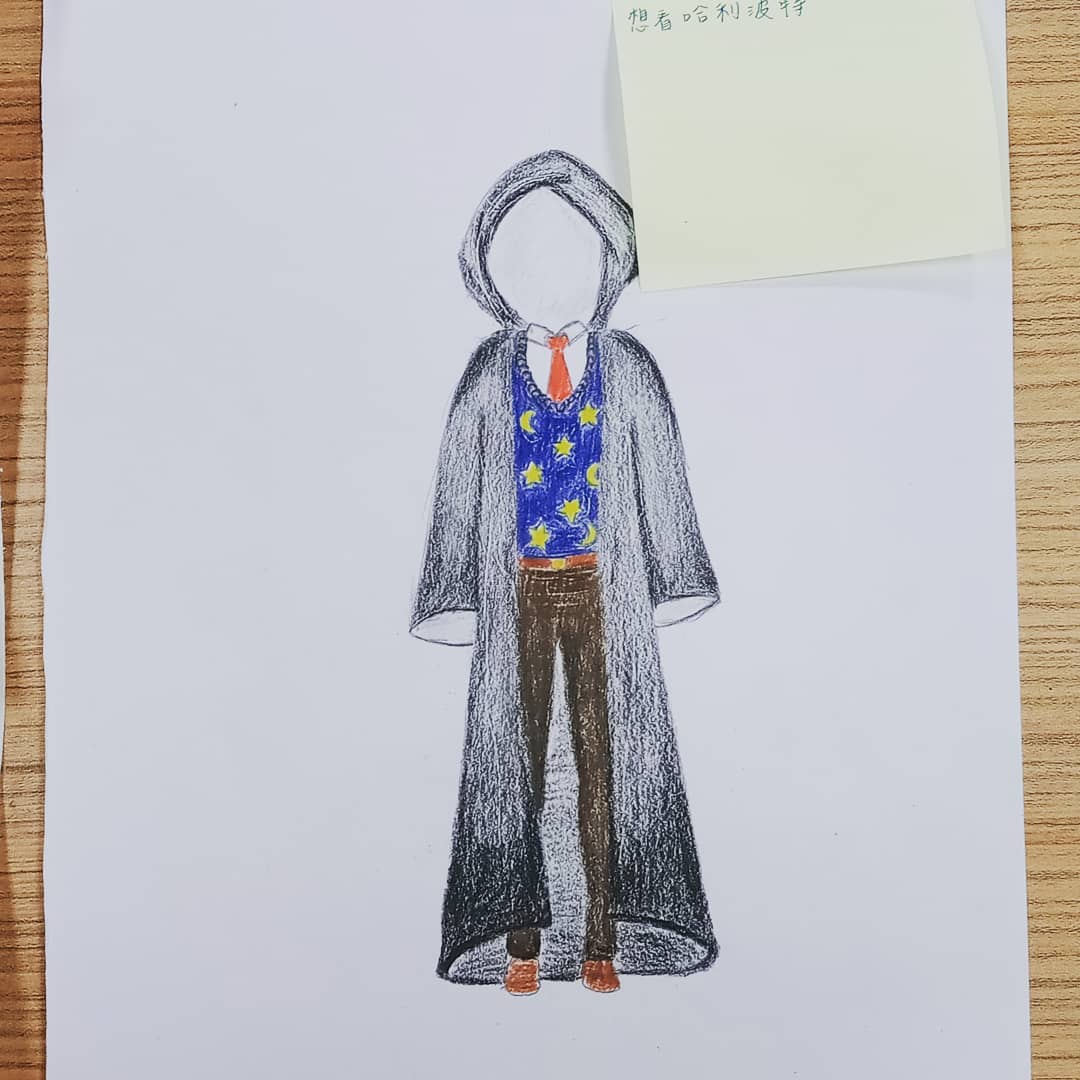 想看哈利波特